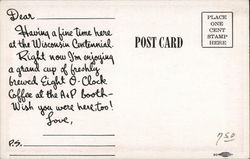 Dear
Having a fine time here
at the Wisconsin Centennial.
Right now I'm enjoying
a grand cup of freshly
brewed Eight O-Clock
Coffee at the A&P booth—
Wish you were here, too!
Love,
P.S.
POST CARD
PLACE
ONE
CENT
STAMP
HERE
7.50